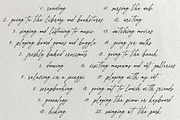 1. reading 11. surfing the web
2. going to the library and bookstores 12. writing
3. singing and listening to music 13. watching movies
4. playing board games and boggle 14. going for walks
5. freshly baked croissants 15. going to the beach
6. dancing 16. visiting museums and art galleries
7. relaxing in a 17. playing with my cat
8. scrapbooking 18. going out to lunch with friends
9. genealogy 19. playing the piano or keyboard
10. hiking 20. singing at the park